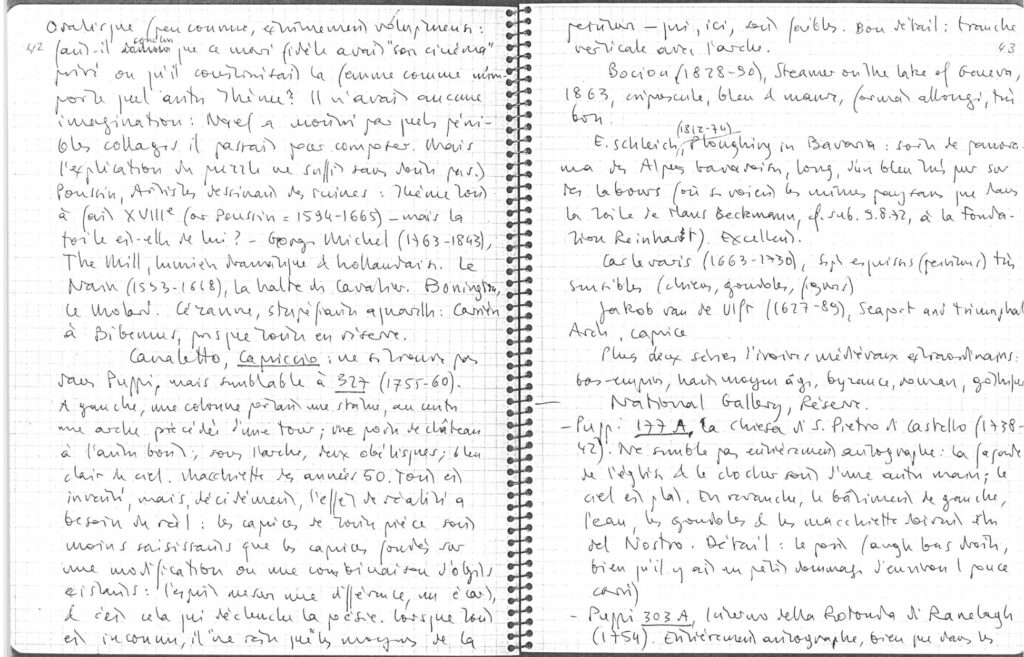 42
Odalisque (peu connue, extrêmement voluptueuse:
faut-il conclure que ce mari fidèle avait "son cinéma"
privé ou qu'il construisait la femme comme n'im-
porte quel autre thème? Il n'avait aucune
imagination: Nagel a montré par quels péni-
bles collages il passait pour composer. Mais
l'explication du puzzle ne suffit sans doute pas.)
Poussin, Artistes dessinant des ruines: thème tout
à fait XVIIIe (or Poussin = 1594-1665) – mais la
toile est-elle de lui? – Georges Michel (1763-1843),
The Mill, lumière dramatique et hollandaise. Le
Nain (1593-1648), la halte du cavalier. Bonington,
Le Molard. Cézanne, stupéfiante aquarelle: Carrière
à Bibemus, presque toute en réserve.
Canaletto, Capriccio: ne se trouve pas
dans Puppi, mais semblable à 327 (1755-60).
A gauche, une colonne portant une statue, au centre
une arche précédée d'une tour; une porte de château
à l'autre bout; sous l'arche, deux obélisques; bleu
clair du ciel. Macchiette des années 50. Tout est
inventé, mais, décidément, l'effet de réalité a
besoin du réel: les caprices de toute pièce sont
moins saisissants que les caprices fondés sur
une modification ou une combinaison d'objets
existants: l'esprit mesure une différence, un écart,
et c'est cela qui déclenche la poésie. Lorsque tout
est inconnu, il ne reste que les moyens de la
43
peinture – qui, ici, sont faibles. Bon détail: tranche
verticale avec l'arche.
Bocion (1828-90), Steamer on the lake of Geneva,
1863, crépuscule, bleu et mauve, format allongé, très
bon
E. Schleich (1812-74), Ploughing in Bavaria: sorte de panora-
ma des Alpes bavaroises, long, d'un bleu très pur sur
des labours (où se voient les mêmes paysans que dans
la toile de Hans Beckmann, cf. sub. 9.8.72, à la Fonda-
tion Reinhart). Excellent.
Carlevaris (1663-1730), sept esquisses (peintures) très
sensibles (chiens, gondoles, figures)
Jakob van de Ulft (1627-89), Seaport and triumphal
Arch, caprice
Plus deux séries d'ivoires médiévaux extraordinaires:
bas-empire, haut moyen âge, byzance, roman, gothique
National Gallery, Réserve.
– Puppi 177 A, la chiesa di S. Pietro di Castello (1738-
42). Ne semble pas entièrement autographe: la façade
de l'église et le clocher sont d'une autre main; le
ciel est plat. En revanche, le bâtiment de gauche,
l'eau, les gondoles et les macchiette doivent être
del Nostro. Détail: le pont (angle bas droite,
bien qu'il y ait un petit dommage d'environ 1 pouce
carré)
– Puppi 303 A, Interno della Rotonda di Ranelagh
(1754). Entièrement autographe, bien que dans les